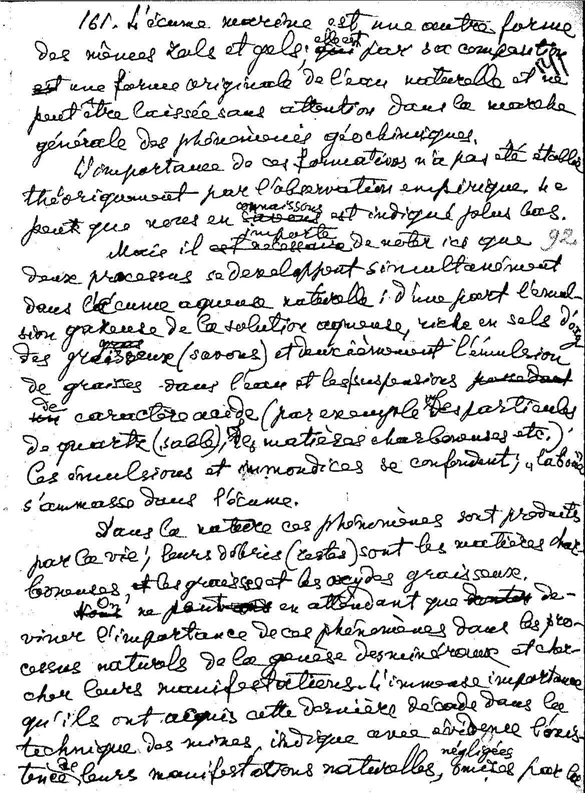 161. L'écume marine est une autre forme
des mêmes sals et gels; elle est par sa composition
une forme originale de l'eau naturelle et ne
peut être laissée sans attention dans la marche
générale des phénomènes géochimiques.
L'importance de ces formations n'a pas été établie
théoriquement par l'observation empirique. Le
peut que nous en connaissons est indiqué plus bas.
Mais il importe de noter ici que 92
deux processus se developpent simultanément
dans l'écume aqueuse naturelle: d'une part l'émul-
sion gazeuse de la solution aqueuse, riche en sels d'acy
des gras (savons) et deuxièmement l'émulsion
de graisses dans l'eau et les suspensions
de caractère acide (par exemple les particules
de quartz (sable), des matières charboneuses etc.)
Ces émulsions et immondices se confondent; "la boue
s'ammasse dans l'écume.
Dans la nature ces phénomènes sont produits
par la vie; leurs débris (restes) sont les matières char
boneuses, les graisses et les oxydes graisseux.
On ne peut en attendant que de-
viner l'importance de ces phénomènes dans les pro-
cessus naturels de la genèse des minéraux et cher-
cher leurs manifestations. L'immense importance
qu'ils ont acquis cette dernière décade dans la
technique des mines indique avec évidence l'exis-
tence de leurs manifestations naturelles, négligées omises par la